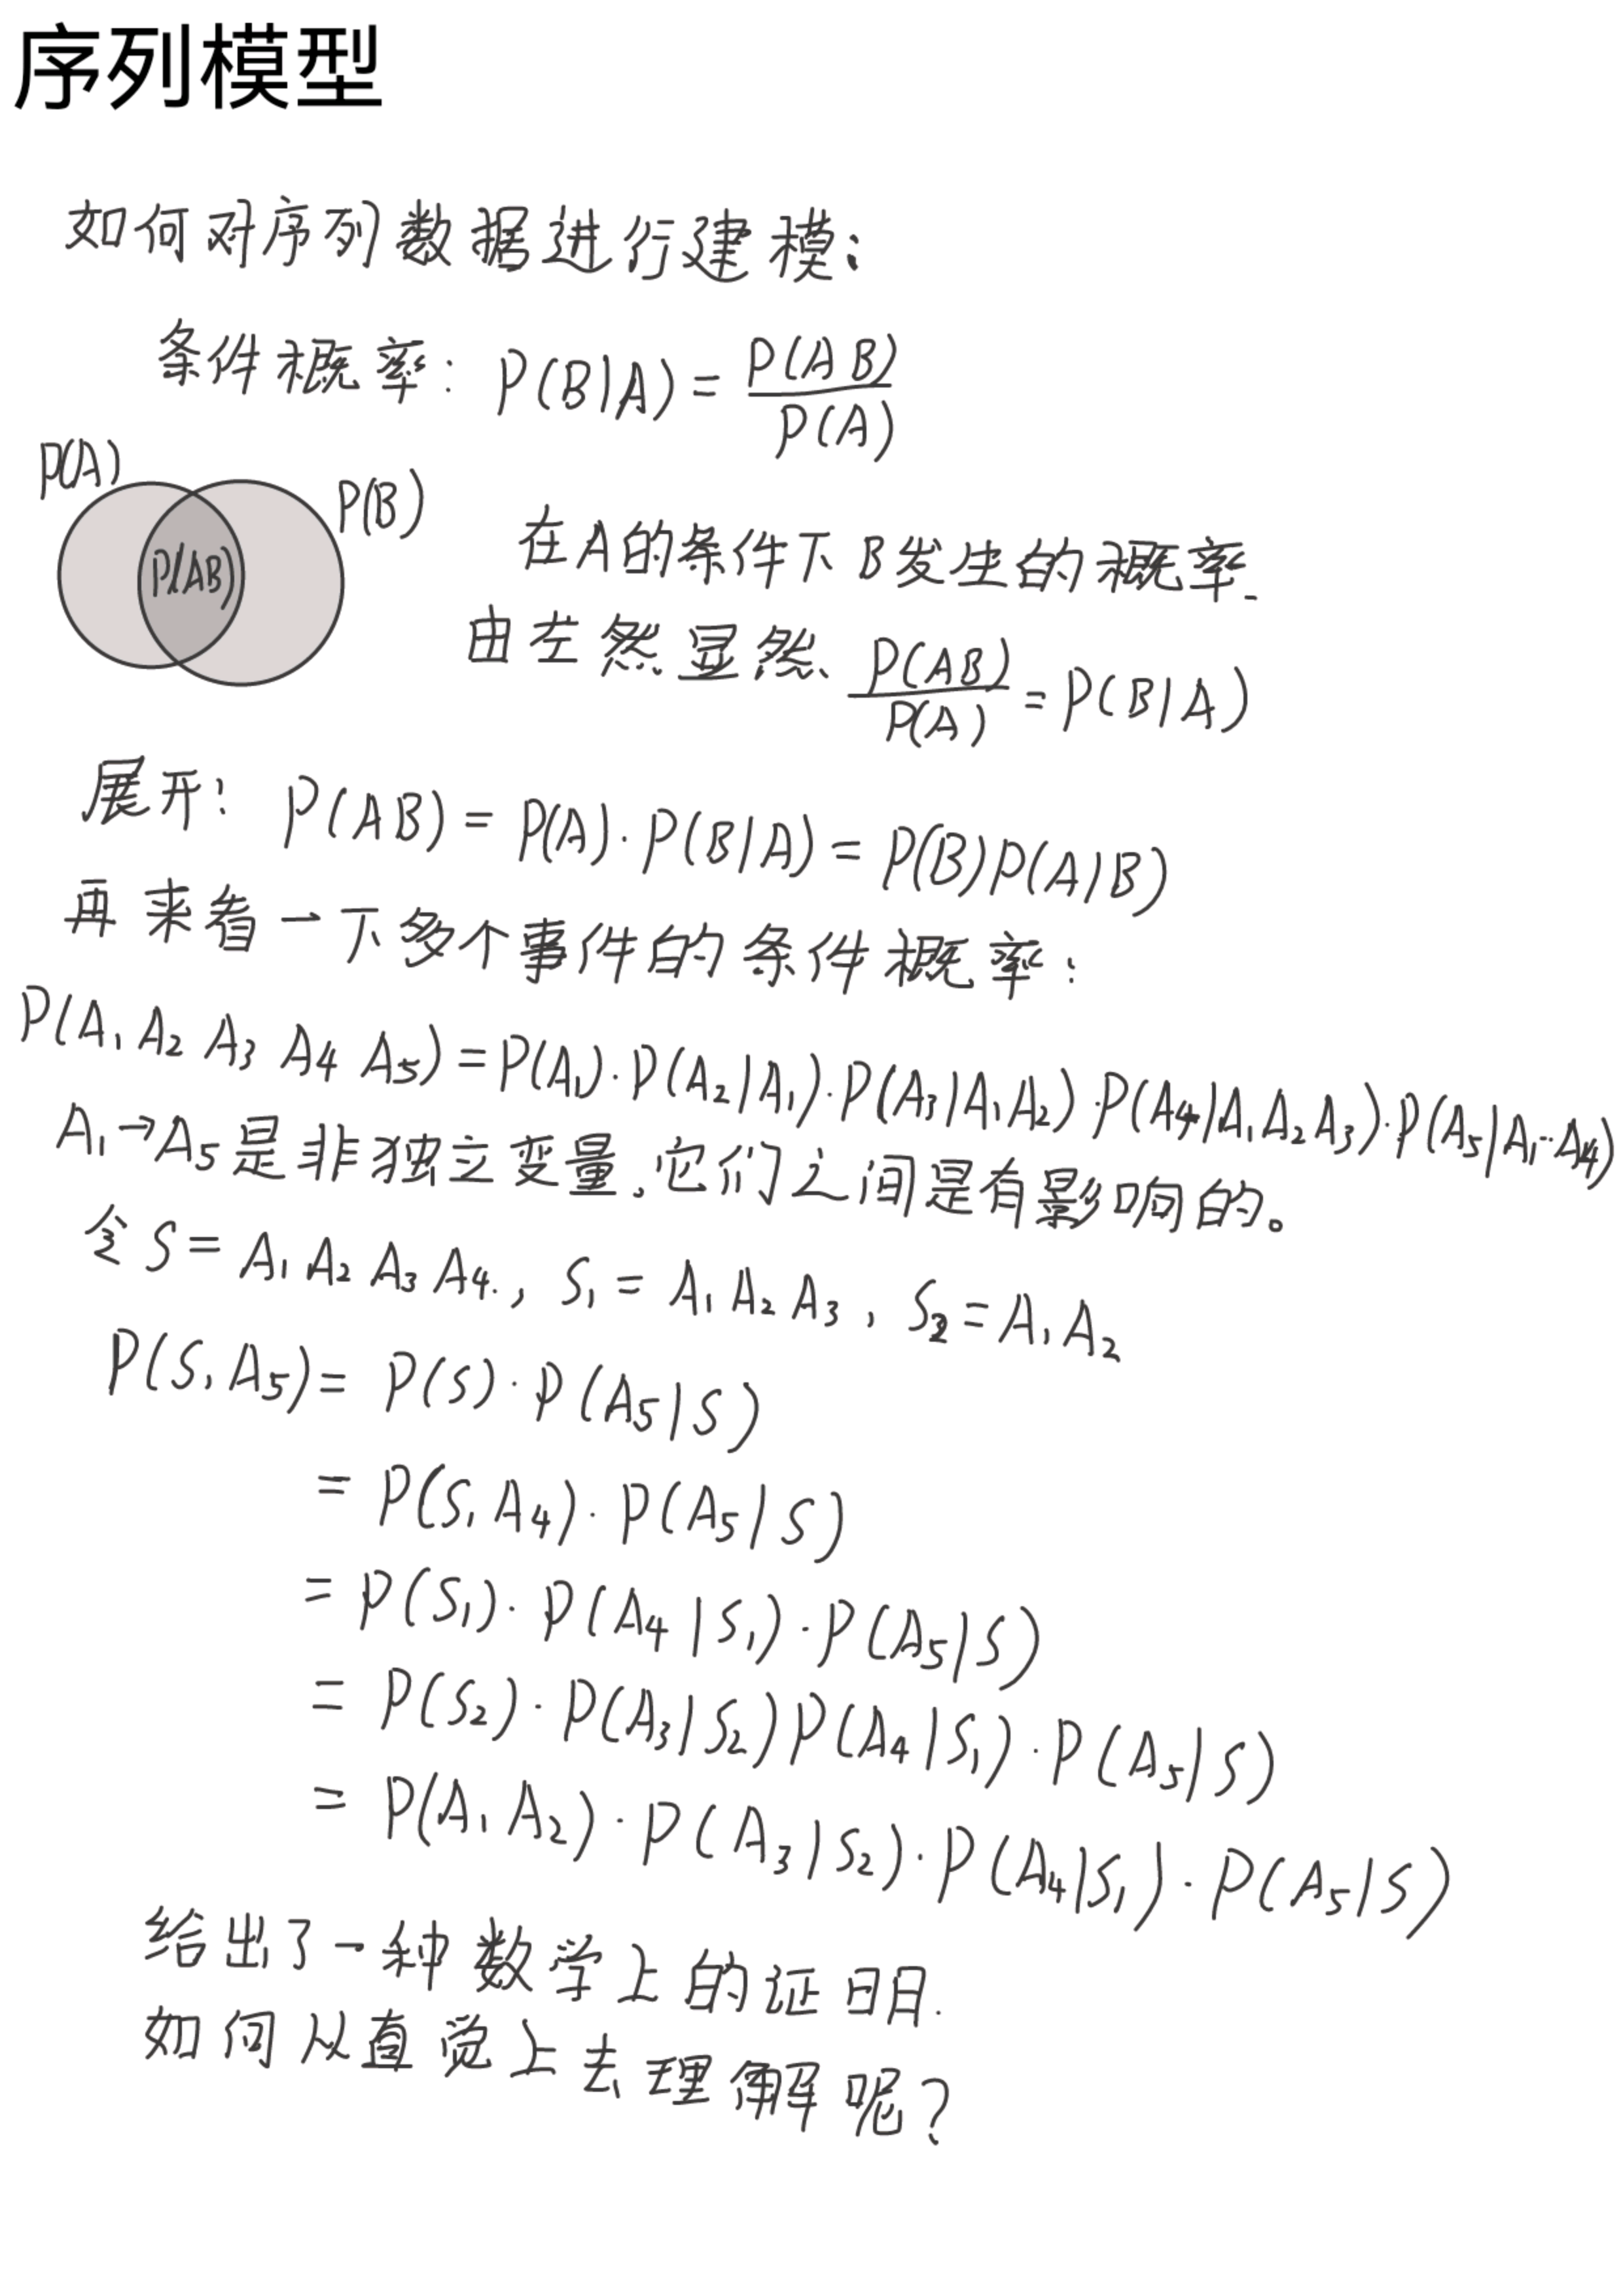 序列模型
如何对序列数据进行建模:
条件概率: P(B|A) = P(AB)/P(A)
P(A)
P(B)
P(AB)
在A的条件下B发生的概率.
由左然显然 P(AB)/P(A) = P(B|A)
展开: P(AB) = P(A)·P(B|A) = P(B)P(A|B)
再来看一下多个事件的条件概率:
P(A₁ A₂ A₃ A₄ A₅) = P(A₁)·P(A₂|A₁)·P(A₃|A₁A₂)·P(A₄|A₁A₂A₃)·P(A₅|A₁··A₄)
A₁→A₅是非独立变量,它们之间是有影响的。
令 S = A₁ A₂ A₃ A₄., S₁ = A₁ A₂ A₃, S₂ = A₁ A₂
P(S, A₅) = P(S)·P(A₅|S)
= P(S₁ A₄)·P(A₅|S)
= P(S₁)·P(A₄|S₁)·P(A₅|S)
= P(S₂)·P(A₃|S₂)P(A₄|S₁)·P(A₅|S)
= P(A₁ A₂)·P(A₃|S₂)·P(A₄|S₁)·P(A₅|S)
给出了一种数学上的证明.
如何从直觉上去理解呢?